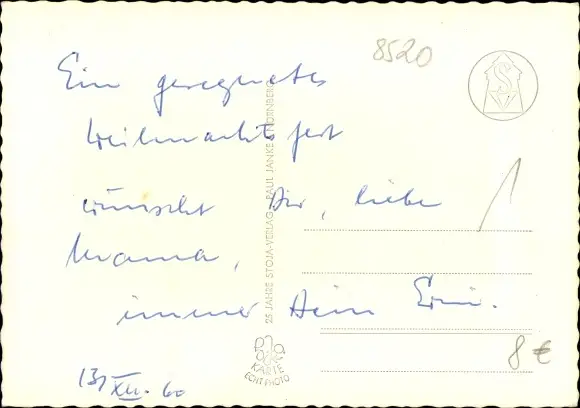 8520
Ein gesegnetes
Weihnachtsfest
wünscht Dir, liebe
Mama,
immer Dein Erni.
13/XII. 60
25 JAHRE STOJA-VERLAG PAUL JANKE NÜRNBERG
S
1
KARTE
ECHT PHOTO
8 €